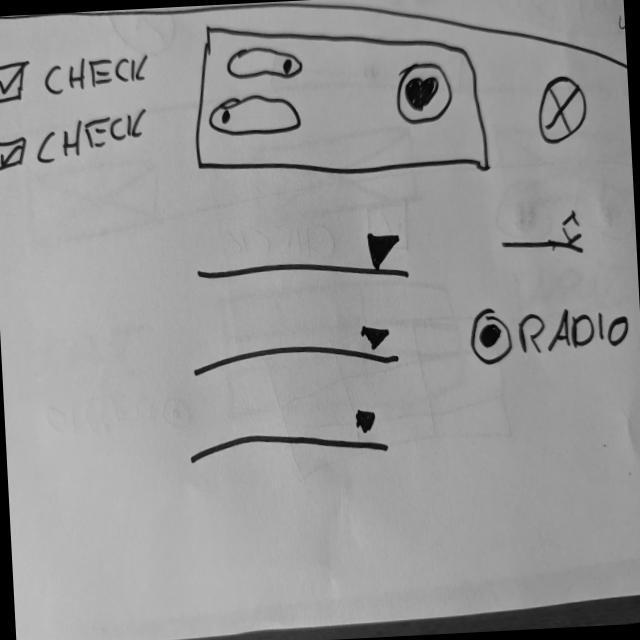 CHECK
CHECK
RADIO